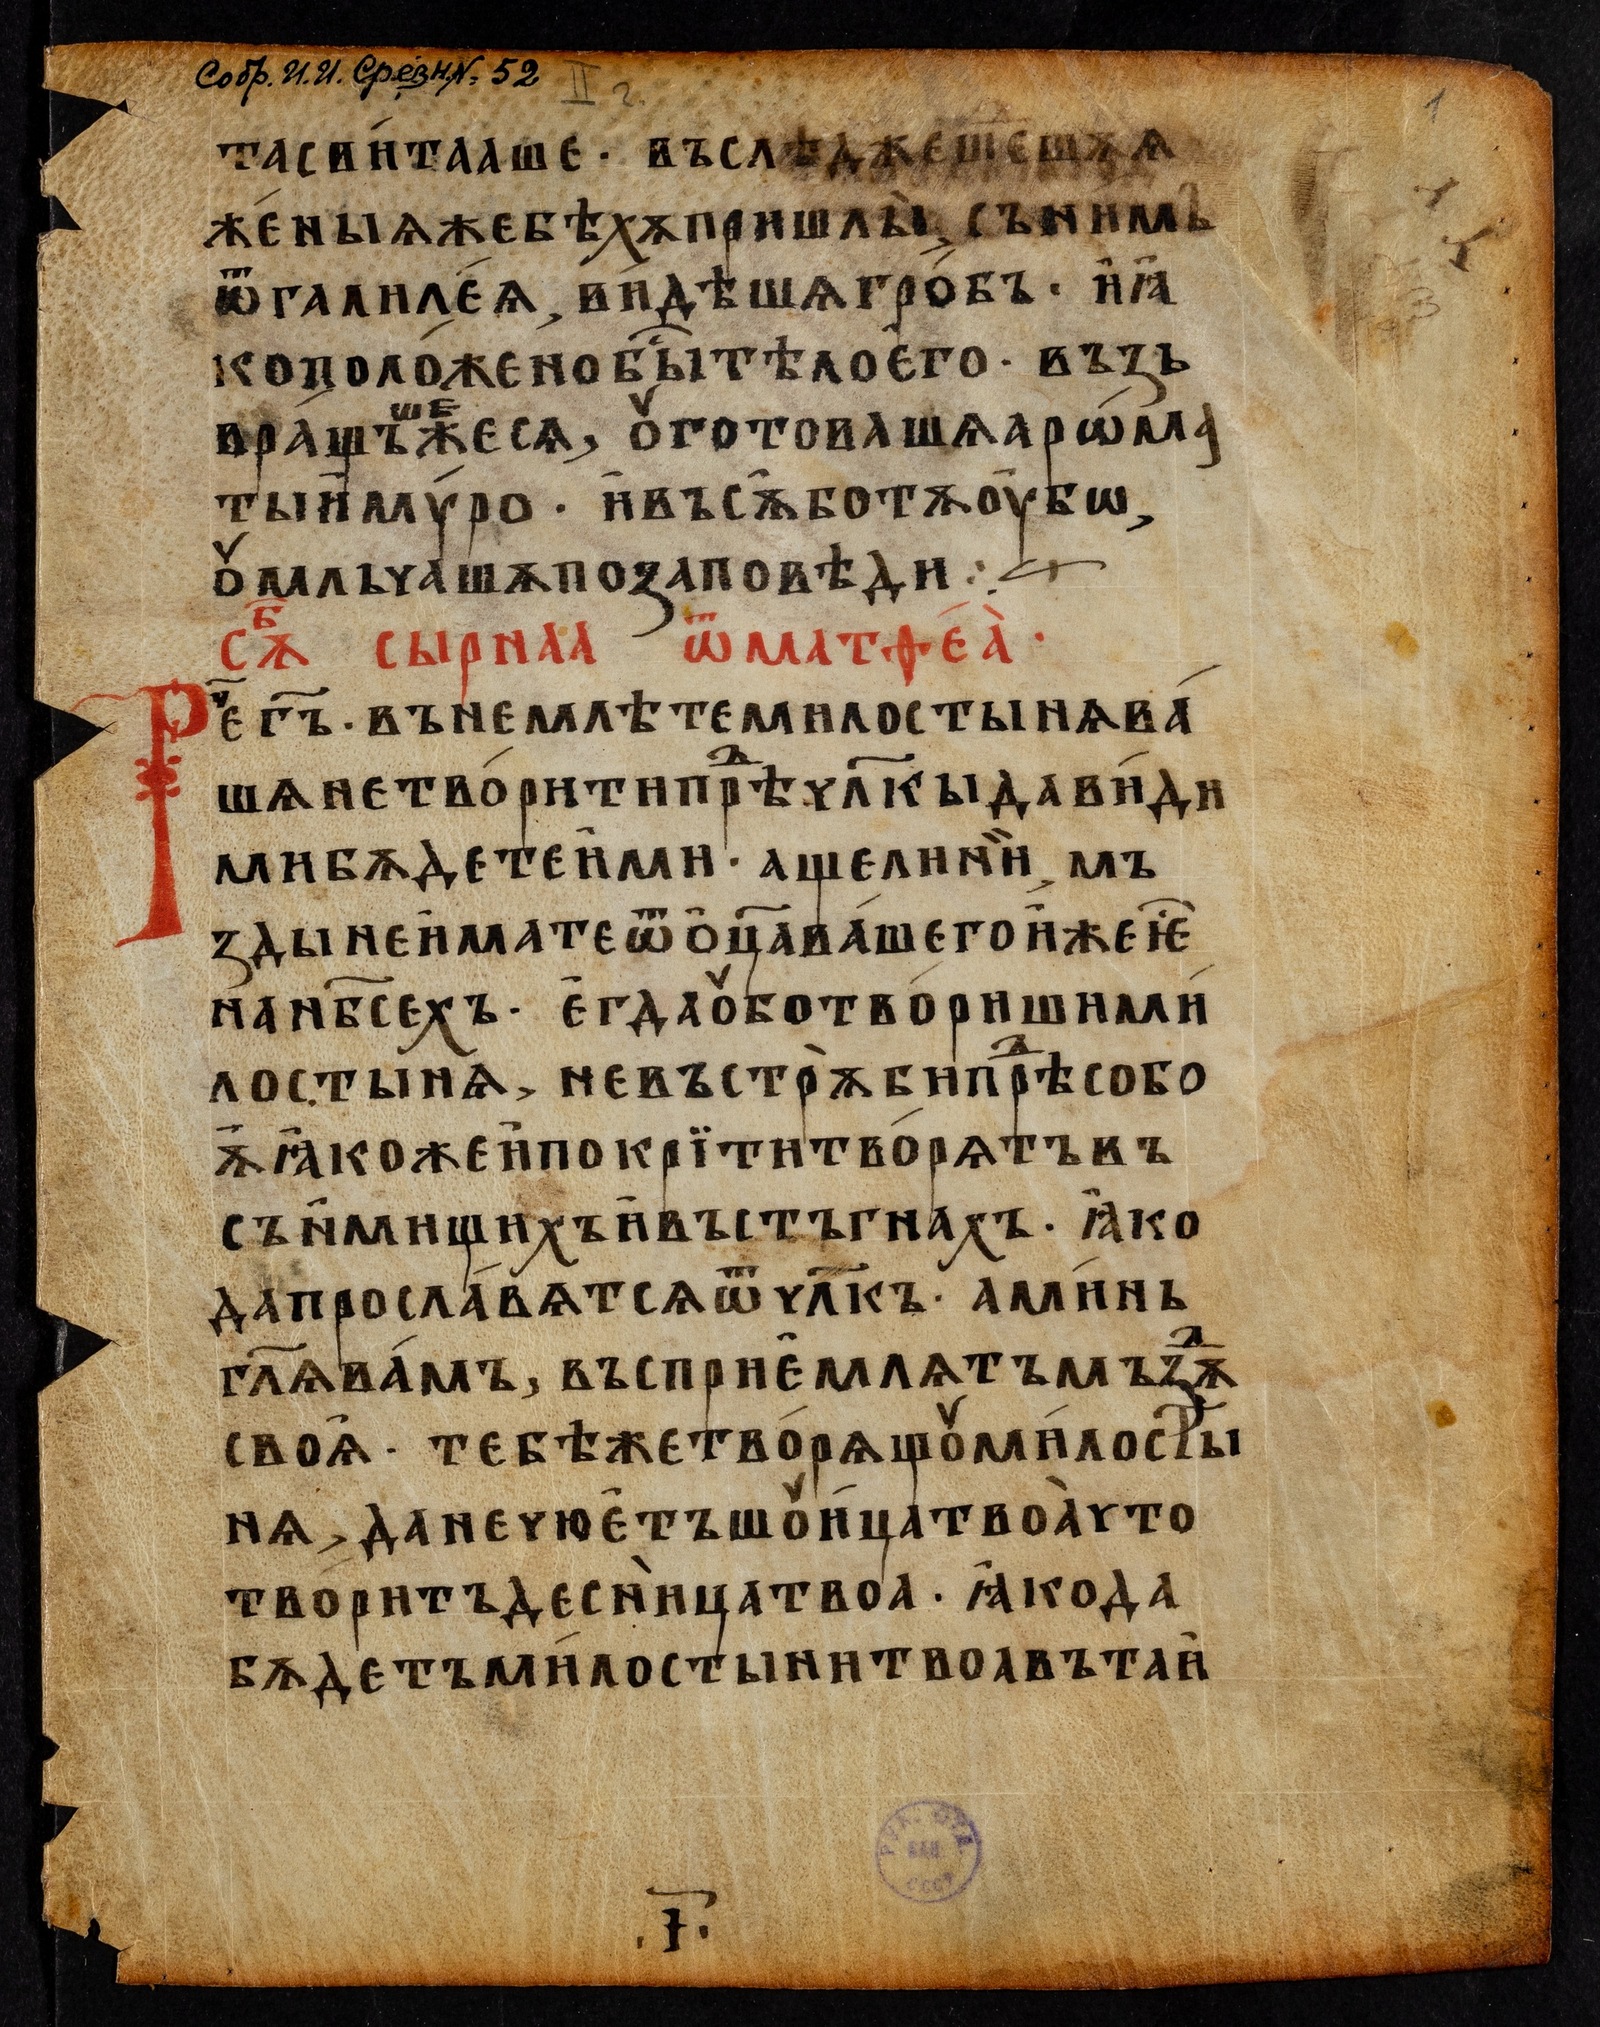 Собр. И.И. Срезн. № 52 II г. 1
тасви́тааше · въслѣджешешѫѧ
же́ныѧжебѣхѫпришлы̀, съни́мъ
ѿгалиле́ѧ, ви́дѣшѧгро́бъ · и҆ꙗ҆
коположенобы҇тѣлоего · възъ
вра́щъшеже́сѧ, ꙋготовашѧарѡ́ма
тыи҆мѵ́ро · и҆въсѫ҆ботѫоу҆бѡ,
ꙋмльчашѫпозаповѣди :~
сѫб҃ сырнаа ѿматѳе́а̀ ·
Рече г҃ъ · вънемлѣтемилостынѧва́
шѧнетво́ритипрѣⷣч҃лкыдави́ди
мибѫдетеи҆ми · ащелини̏, мъ
здынеи҆матеѿо҆ц҃ава́шегои҆жеѥ҇
нанб҃сехъ · е҆гдаꙋботво́ришими́
лостынѧ, невъстрѫ̀бипрѣⷣсобо
ѫ҆ꙗ҆кожеи҆покрїтитво́рѧтъвъ
съи҆мищихъи҆въстъгнахъ · ꙗ҆ко
дапросла́вѧтсѧѿч҃лкъ · ами́нь
гл҃ѧва́мъ, въсприе҆млѧтъмъзⷣѫ
своѧ҆ · тебѣжетво́рѧщꙋми́лосты
нѧ, данечюе҆тъшꙋи́цатвоа̀что
тво́ритъдесни̏цатвоа · ꙗ҆кода
бѫдетъми́лостынитвоавътаи҆
РУК. ОТД. БАН СССР
· І҃ ·